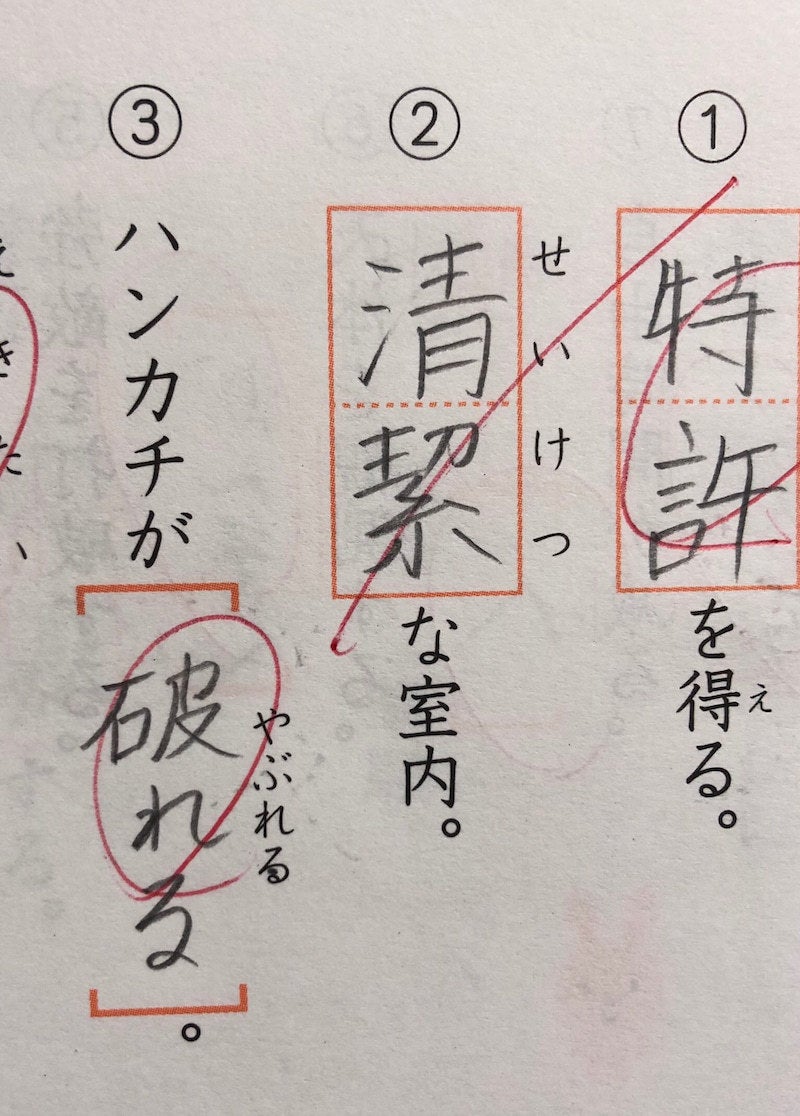 ① 特許を得る。
え
② 清絜な室内。
せいけつ
③ ハンカチが破れる。
やぶれる